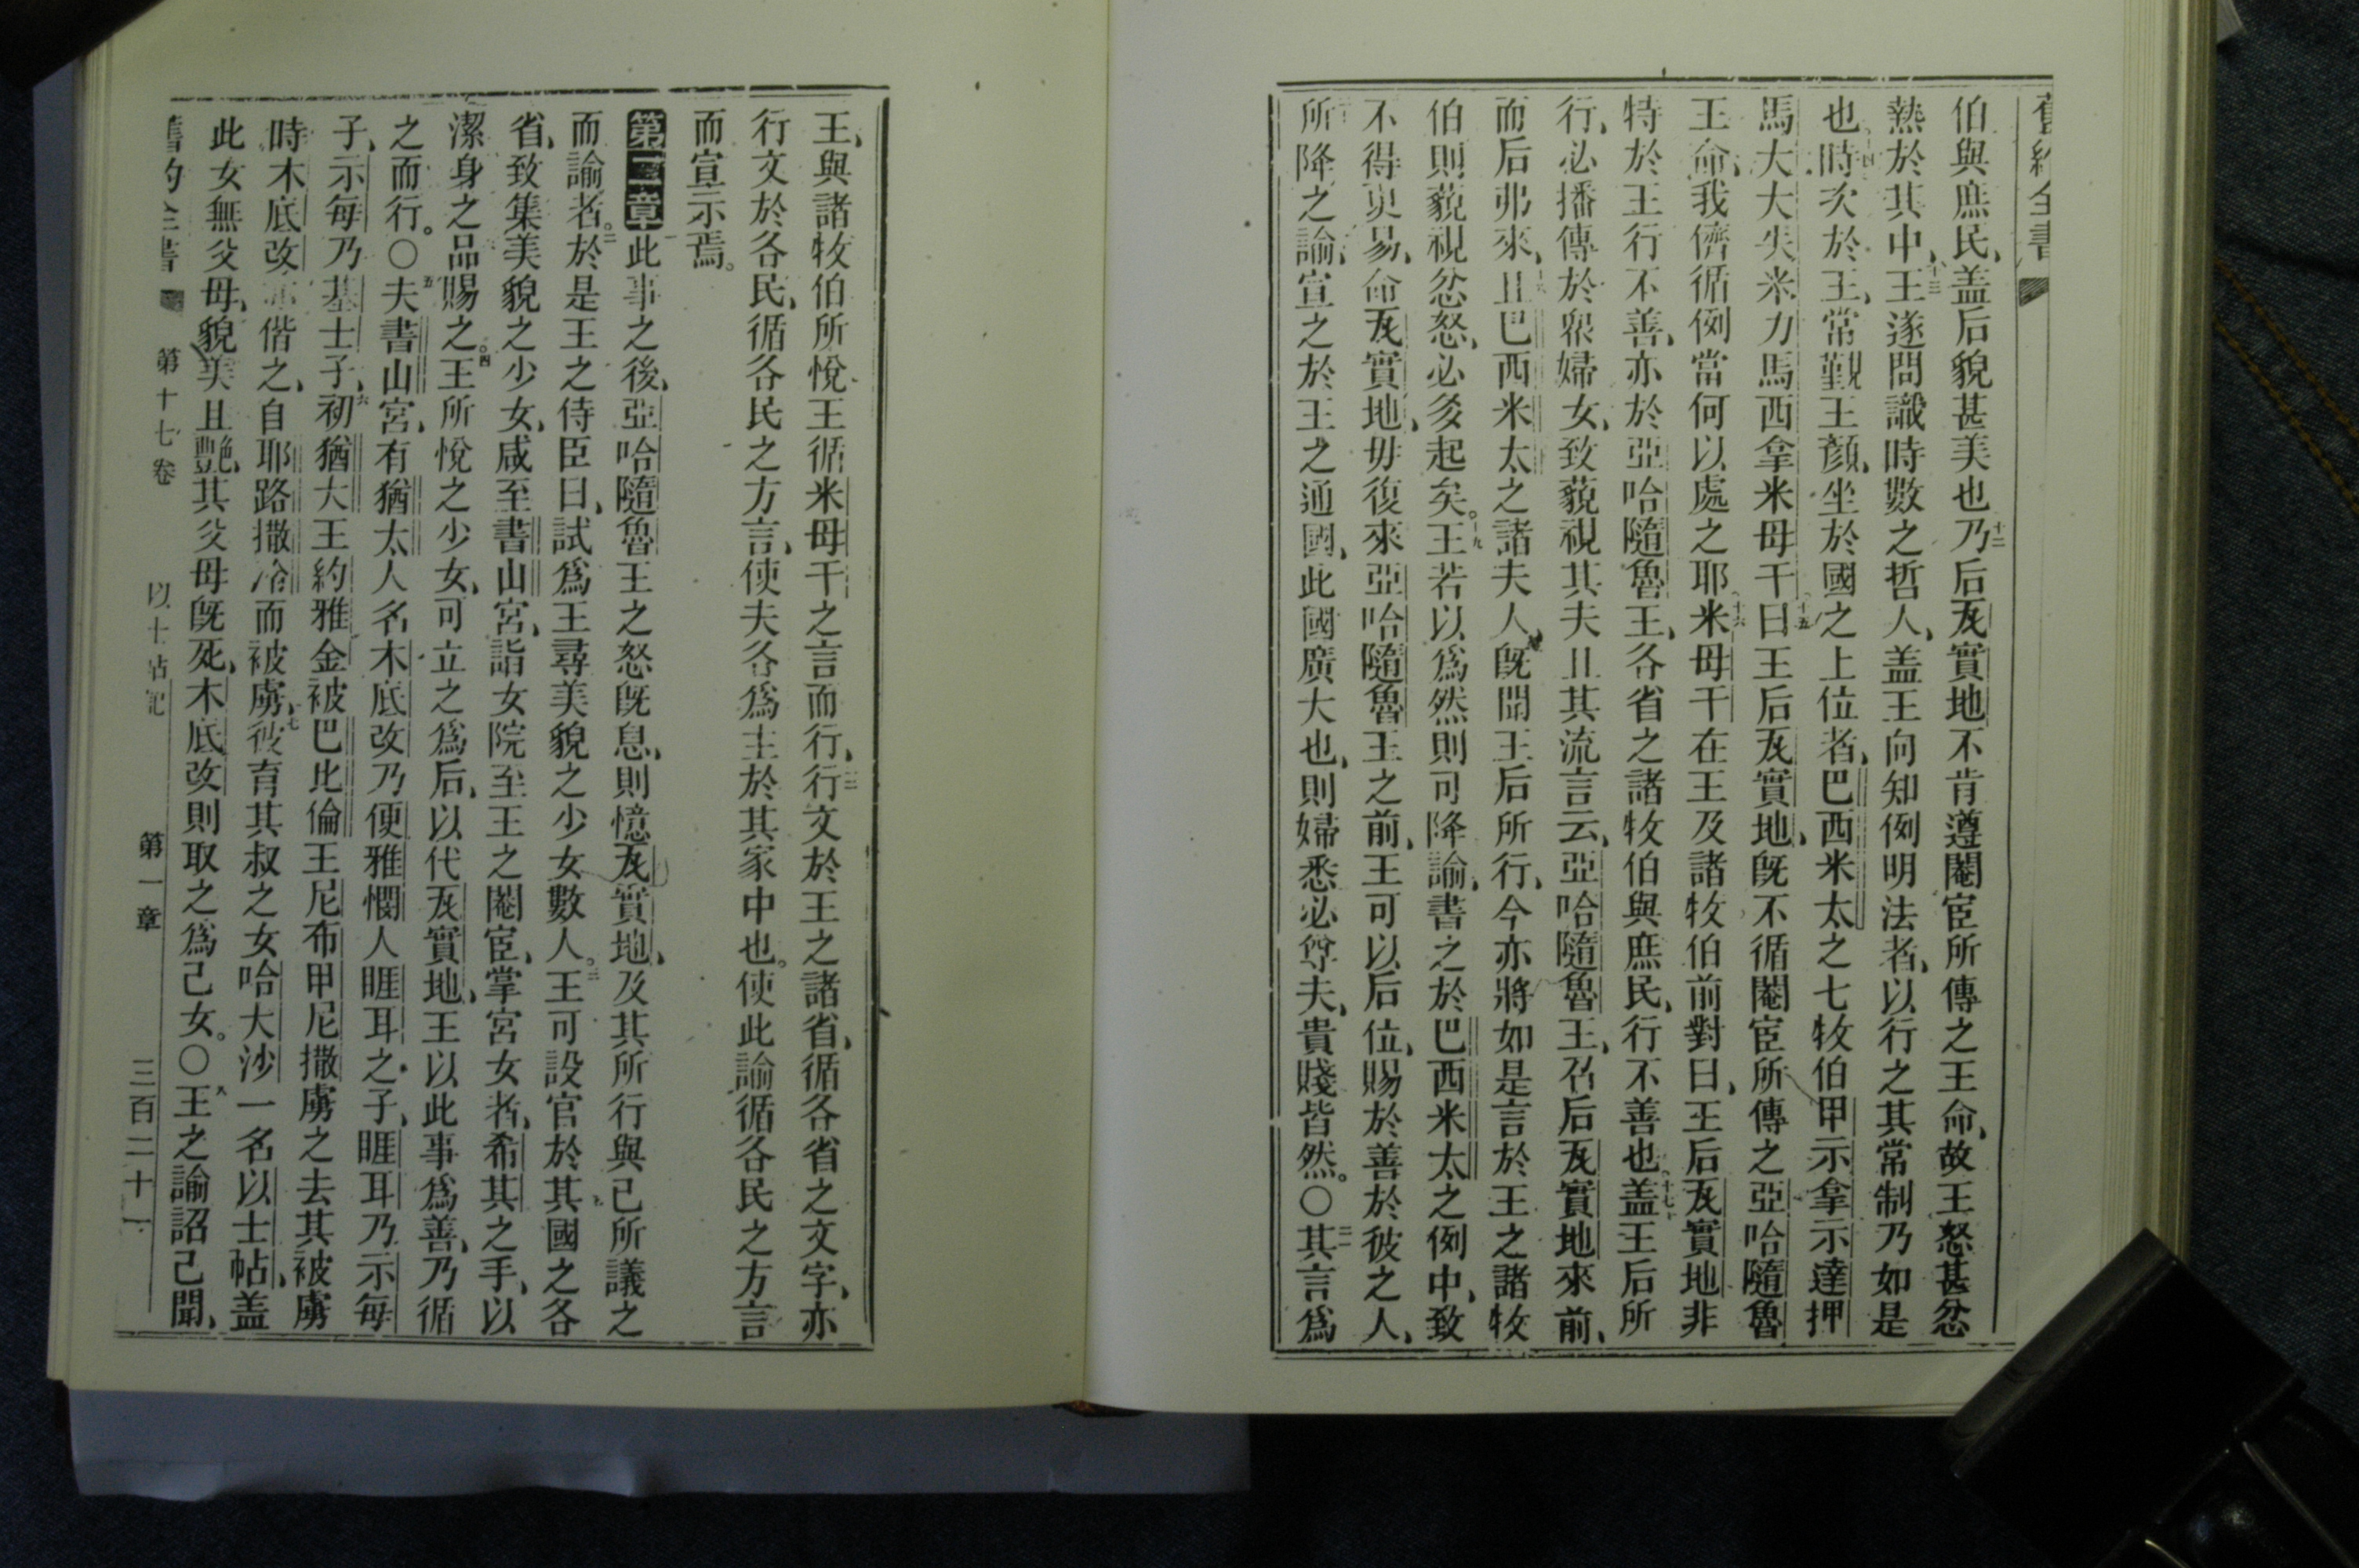 舊約全書
伯與庶民、盖后貌甚美也、十二乃后瓦實地不肯遵閹宦所傳之王命、故王怒甚忿
熱於其中、十三王遂問識時數之哲人、盖王向知例明法者、以行之其常制乃如是
也、十四時次於王、常觀王顏、坐於國之上位者、巴西米太之七牧伯甲示拿示達押
馬大大失米力馬西拿米母干曰、十五王后瓦實地、既不循閹宦所傳之亞哈隨魯
王命、我儕循例當何以處之耶、十六米母干在王及諸牧伯前對曰、王后瓦實地非
特於王行不善、亦於亞哈隨魯王、各省之諸牧伯與庶民、行不善也、十七盖王后所
行、必播傳於衆婦女、致藐視其夫且其流言云、亞哈隨魯王、召后瓦實地來前、
而后弗來、且巴西米太之諸夫人、既聞王后所行、今亦將如是言於王之諸牧
伯則藐視忿怒、必多起矣。十九王若以爲然則可降諭、書之於巴西米太之例中、致
不得更易、命瓦實地、毋復來亞哈隨魯王之前、王可以后位、賜於善於彼之人、
所降之諭、宣之於王之通國、此國廣大也、則婦悉必尊夫、貴賤皆然。〇其言爲
王、與諸牧伯所悅、王循米母干之言而行、行文於王之諸省、循各省之文字、亦
行文於各民、循各民之方言、使夫各爲主於其家中也。使此諭循各民之方言
而宣示焉。
第二章此事之後、亞哈隨魯王之怒既息、則憶瓦實地、及其所行與己所議之
而諭者。二於是王之侍臣曰、試爲王尋美貌之少女數人。三王可設官於其國之各
省、致集美貌之少女、咸至書山宮、詣女院至王之閹宦、掌宮女者、希其之手、以
潔身之品賜之。四王所悅之少女、可立之爲后、以代瓦實地、王以此事爲善、乃循
之而行。〇五夫書山宮、有猶太人名木底改乃便雅憫人睚耳之子、睚耳乃示每
子、示每乃基士子、六初猶大王約雅金被巴比倫王尼布甲尼撒虜之去其被虜
時木底改亦偕之、自耶路撒冷而被虜、七彼育其叔之女哈大沙一名以士帖、盖
此女無父母、貌美且艷、其父母既死、木底改則取之爲己女。〇八王之諭詔已聞、
舊約全書 第十七卷 以士帖記 第一章 三百二十一